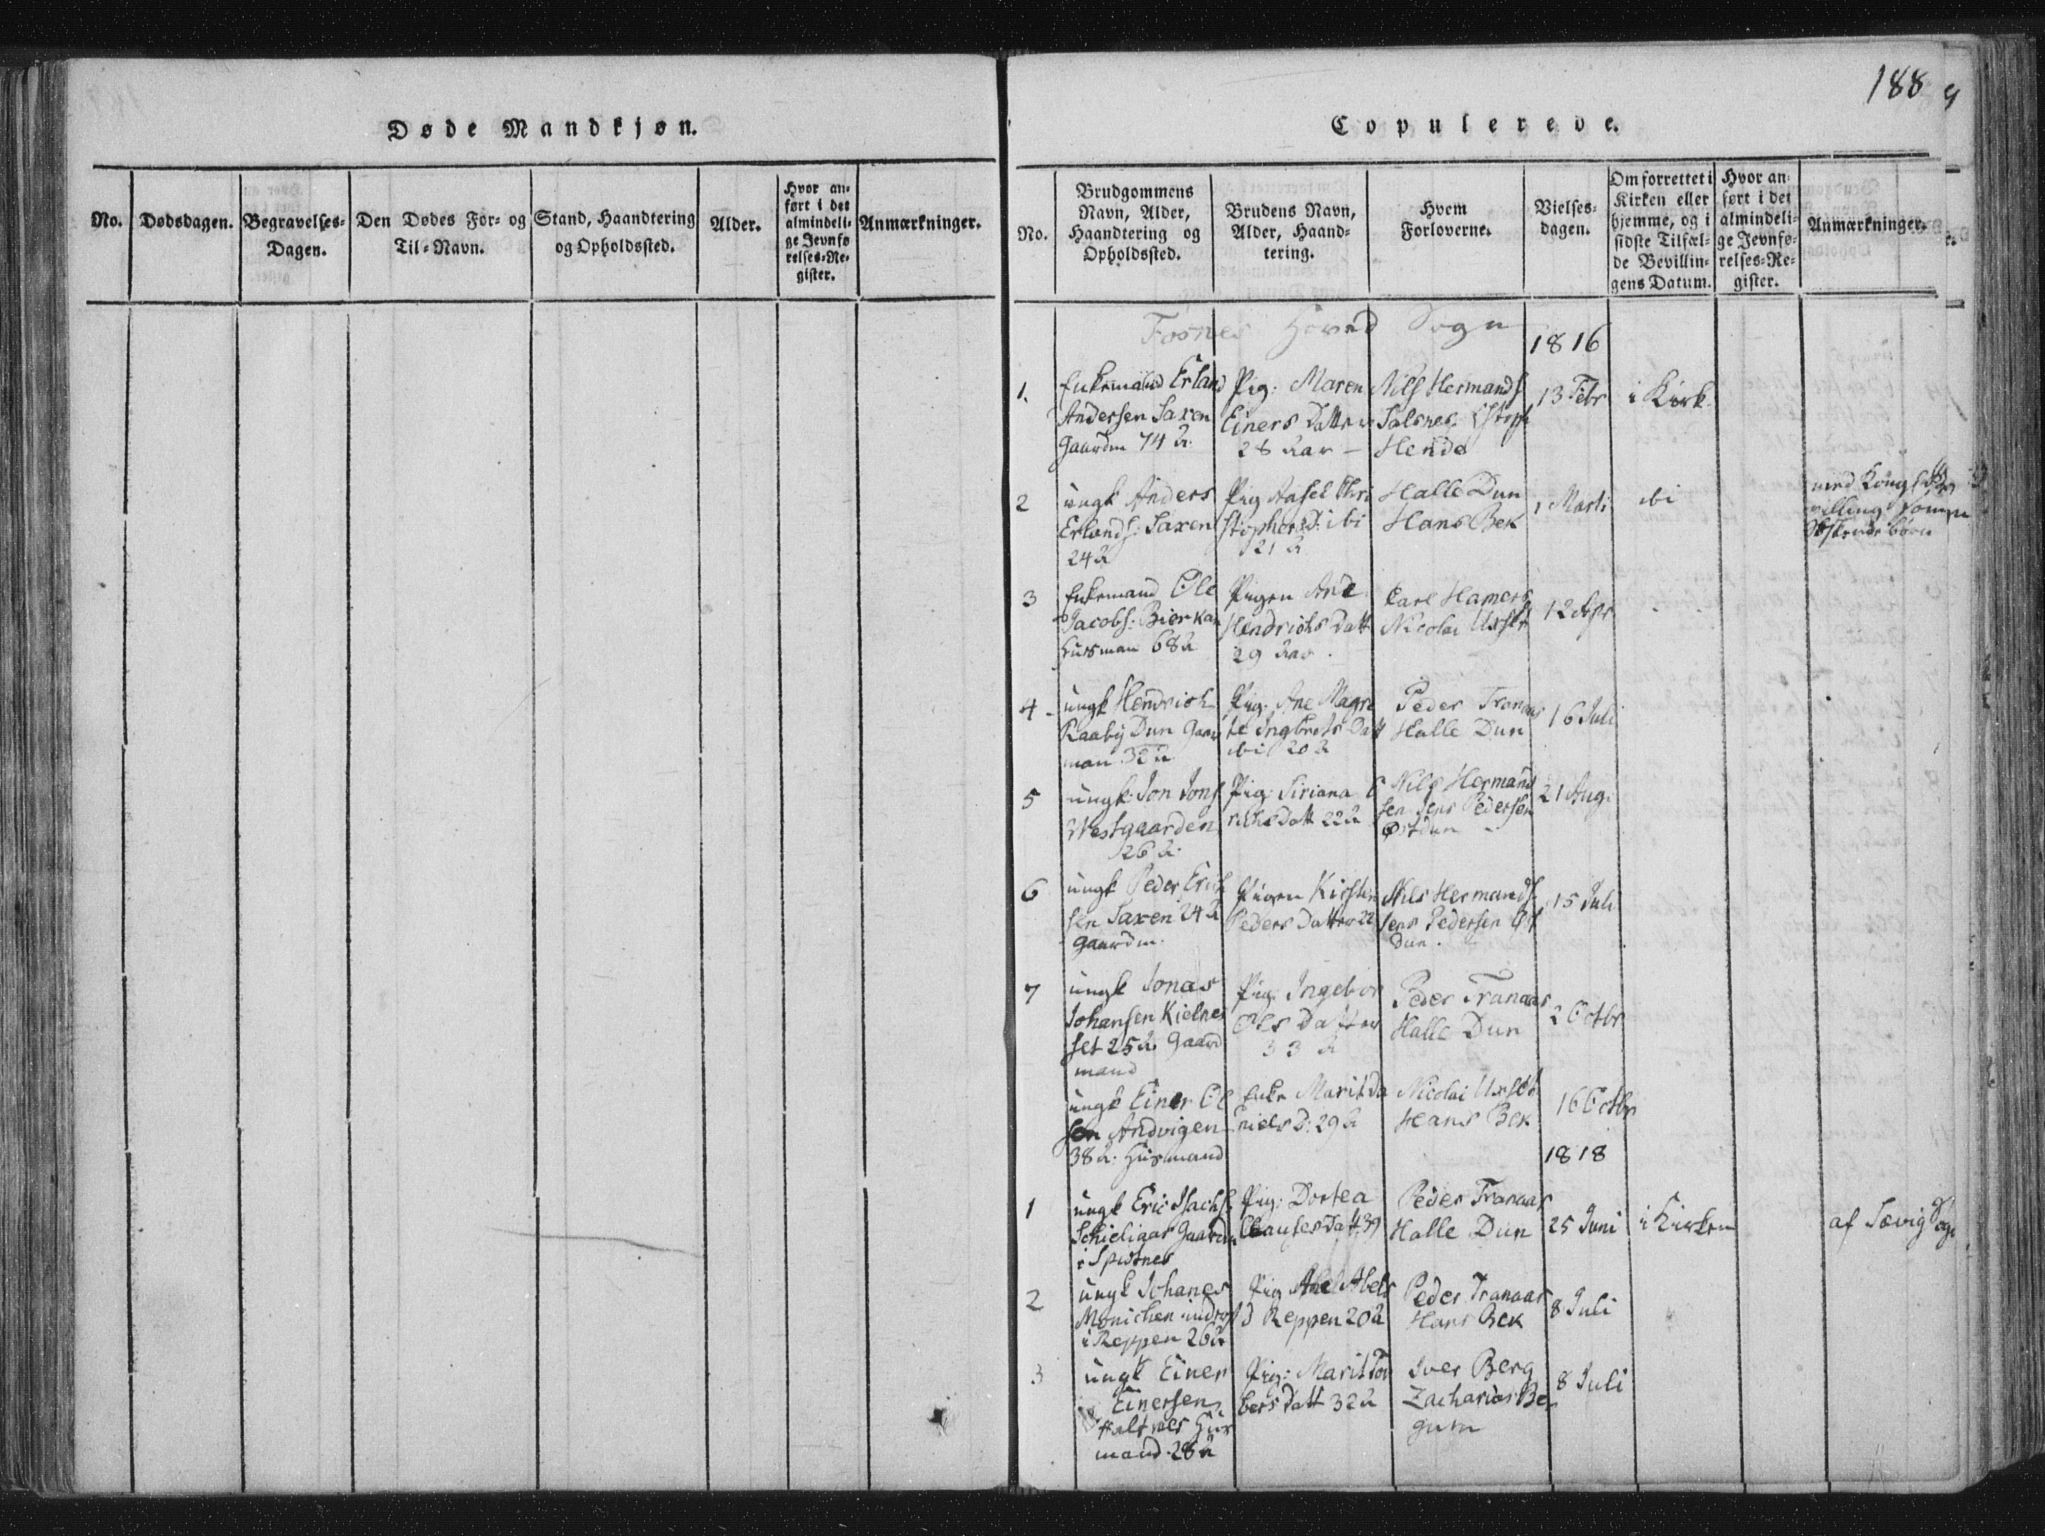 188
Døde Mandkjøn.
No.
Dødsdagen.
Begravelses-
Dagen.
Den Dødes For- og
Til-Navn.
Stand, Haandtering
og Opholdssted.
Alder.
Hvor an-
ført i det
almindeli-
ge Jevnfø
relses-Re-
gister.
Anmærkninger.
Copulerede.
No.
Brudgommens
Navn, Alder,
Haandtering og
Opholdssted.
Brudens Navn,
Alder, Haand-
tering.
Hvem
Forloverne.
Vielses-
dagen.
Om forrettet i
Kirken eller
hjemme, og i
sidste Tilfæl-
de Bevillin-
gens Datum.
Hvor an-
ført i det
almindeli-
ge Jevnfø-
relses-Re-
gister.
Anmærkninger.
Fosnes Hoved Sogn
1816
1.
Enkemand Erland
Andersen Saxen
Gaardm 74 A.
Pig: Maren
Einers Datter
28 Aar -
Nils Hermands
Salsnes
Hendo
13 Febr
i Kirk
2
ungk Anders
Erlands: Saxen
24 A
Pig Aasel Chri
stophersD: ibi
21 A
Halle Dun
Hans Bek
1 Marti
ibi
med Kongl Be
villing
3
Enkemand Ole
Jacobs: Biorkaa
Husman 68 A
Pigen Ane
Hendrichs Datt
29 Aar.
Carl Hamers
Nicolai
12 Apr
4
ungk Hendrich
Raaby Dun Gaar
man 32 A
Pig. Ane Magre
te Ingbrets Datt
ibi 20 A
Peder Tranaas
Halle Dun
16 Juli
5
ungk: Jon Jons
Westgaarden
26 A.
Pig: Siriana E
richsDatt 22 A
Nils Hermand
sen Jens Pedersen
Østdun
21 Aug.
6
ungk Peder Erich
sen Saxen 24 A
gaardm.
Pigen Kirsten
Peders Datter 22
Nils Hermands
Jens Pedersen Øst
dun.
15 Juli
7
ungk Jonas
Johansen Kielnes
set 25 A. Gaard
mand
Pig: Ingebor
Ols Datter
33 A
Peder Tranaas
Halle Dun
2 Octbr
ungk Einer Ol
sen Andvigen
38 A: Husmand
Enke Marit Da
niels D: 29 A
Nicolai
Hans Bek
16 Octbr
1818
1
ungk Eric Isachs
Gaardm
i Spidsnes
Pig: Dortea
ClausesDatt 39
Peder Tranaas
Halle Dun
25 Juni
i Kirken
af Sævig Sogn
2
ungk Johanes
Monichen
i Reppen 26 A
Pig Ane Abels
D Reppen 20 A
Peder Tranaas
Hans Bek
8 Juli
3
ungk Einer
Einersen
Hus
mand. 28 A
Pig: Marit Tor
bersDatt 32 A
Iver Berg
Zacharias Be
gum
8 Juli